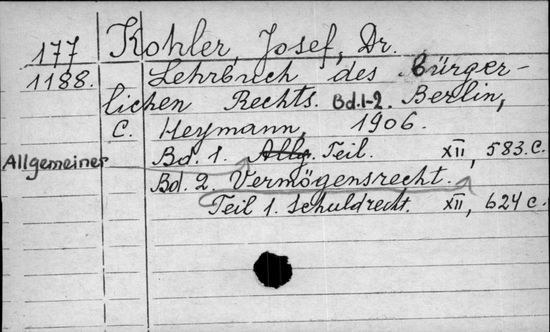 177 Kohler, Josef, Dr.
1188. Lehrbuch des Bürger-
lichen Rechts. Bd.1-2. Berlin,
C. Heymann, 1906.
Allgemeiner Bd. 1. Allg. Teil. XII, 583.c.
Bd. 2. Vermögensrecht.
Teil 1. Schuldrecht. XII, 624 c.